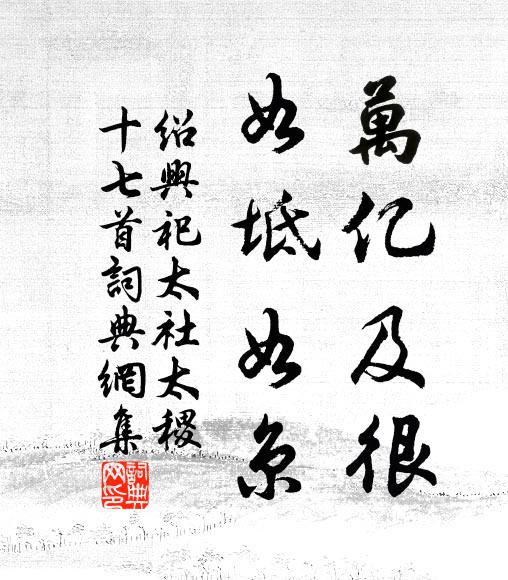 萬亿及很
如坻如京
紹興祀太社太稷
十七首詞典網集
詞典网印